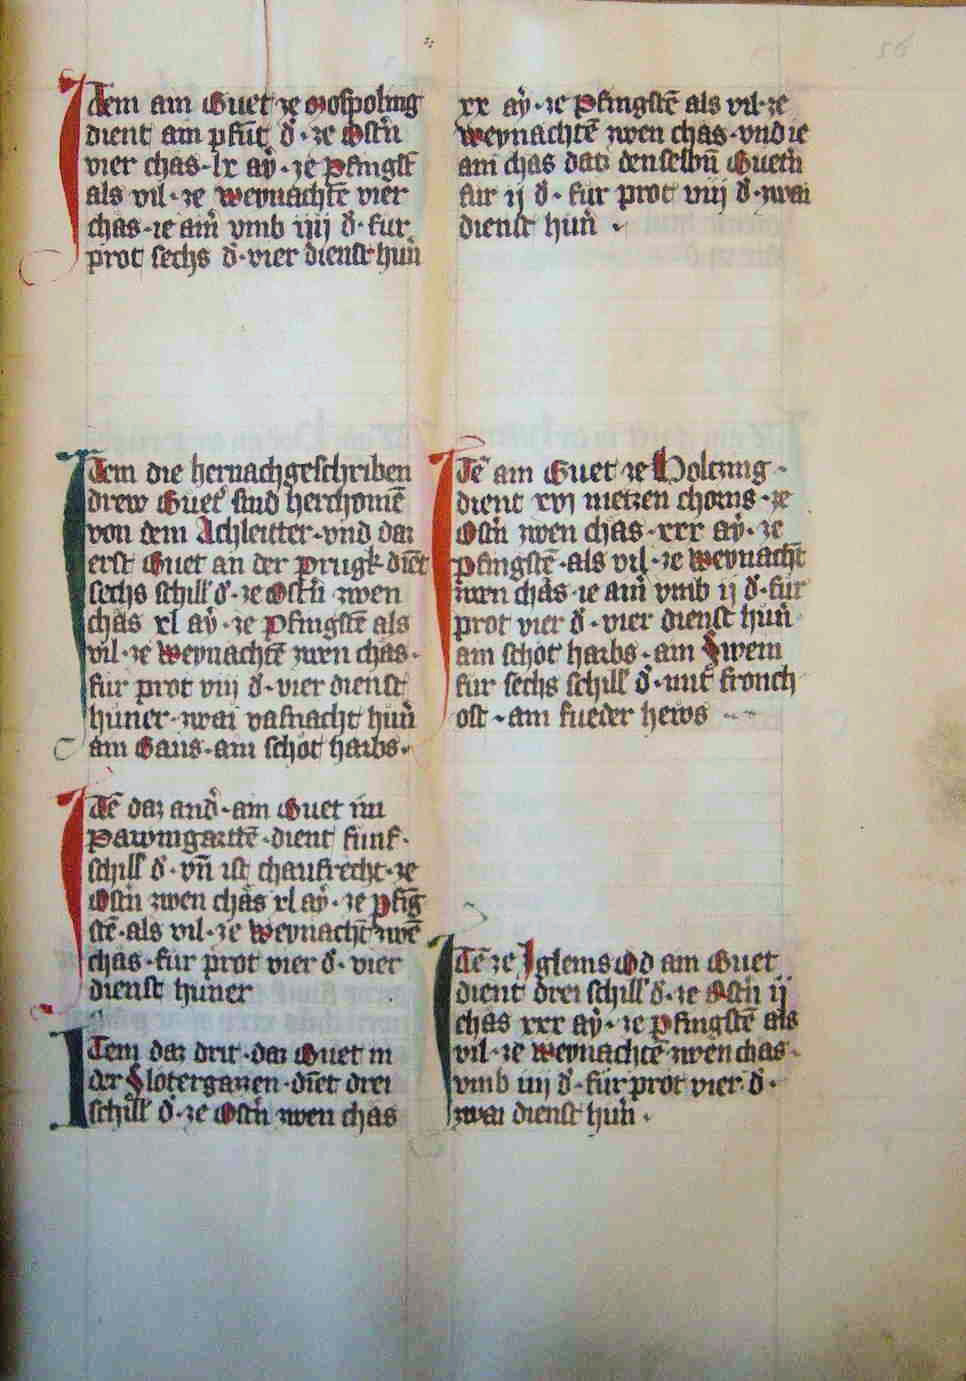 Item ain Guet ze Mospoling
dient ain pfūt d̄ · ze Ostn̄
vier chas · lx aẏ · ze Pfingst̄
als vil · ze Weynachtē vier
chas · ie ain̄ vmb iiij d̄ · fur
prot sechs d̄ · vier dienst hun̄
Item die hernachgeschriben
drew Guet̄ sind herchomē
von dem Achleitter · vnd daz
erst Guet an der prugk · diēt
sechs schill d̄ · ze Ostn̄ zwen
chas xl aẏ · ze Pfingstē als
vil · ze Weynachtē zwen chas ·
fur prot viij d̄ · vier dienst
huner · zwai vasnacht hun̄
ain Gans · ain schot harbs ·
Itē daz and̄ · ain Guet im
Pawmgarttē · dient funf ·
schill d̄ · vn̄ ist chaufrecht · ze
Ostn̄ zwen chas xl aẏ · ze pfīg
stē · als vil · ze Weynacht̄ zwē
chas · fur prot vier d̄ · vier
dienst huner
Item daz drit · daz Guet in
der Slotergassen · diēt drei
schill d̄ · ze Ostn̄ zwen chas
xx aẏ · ze Pfingstē als vil · ze
Weynachtē zwen chas · vnd ie
ain chas daz denselbn̄ Guetn̄
fur ij d̄ · fur prot viij d̄ · zwai
dienst hun̄ ·
Itē ain Guet ze Holczing ·
dient xvj metzen chorns · ze
Ostn̄ zwen chas · xxx aẏ · ze
pfingstē · als vil · ze Weynacht̄
zwen chas · ie ain̄ vmb ij d̄ · fur
prot vier d̄ · vier dienst hun̄
ain schot harbs · ain Swein
fur sechs schill d̄ · mit̄ fronch
ost · ain fueder hews
Itē ze Iglems Od ain Guet
dient drei schill d̄ · ze Ostn̄ ij
chas xxx aẏ · ze Pfingstē als
vil · ze weynachtē zwen chas ·
vmb iiij d̄ · fur prot vier d̄ ·
zwai dienst hun̄ ·